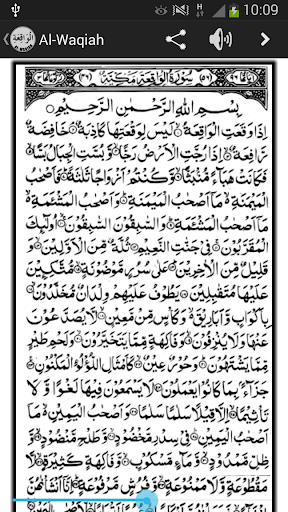 10:09
Al-Waqiah
سُوْرَةُ الْوَاقِعَةِ مَكِّيَّةٌ
بِسْمِ اللهِ الرَّحْمٰنِ الرَّحِيْمِ
اِذَا وَقَعَتِ الْوَاقِعَةُ ۝ لَيْسَ لِوَقْعَتِهَا كَاذِبَةٌ ۝ خَافِضَةٌ
رَّافِعَةٌ ۝ اِذَا رُجَّتِ الْاَرْضُ رَجًّا ۝ وَّبُسَّتِ الْجِبَالُ بَسًّا ۝
فَكَانَتْ هَبَآءً مُّنْۢبَثًّا ۝ وَّكُنْتُمْ اَزْوَاجًا ثَلٰثَةً ۝ فَاَصْحٰبُ
الْمَيْمَنَةِ مَآ اَصْحٰبُ الْمَيْمَنَةِ ۝ وَاَصْحٰبُ الْمَشْـَٔمَةِ
مَآ اَصْحٰبُ الْمَشْـَٔمَةِ ۝ وَالسّٰبِقُوْنَ السّٰبِقُوْنَ ۝ اُولٰٓئِكَ
الْمُقَرَّبُوْنَ ۝ فِيْ جَنّٰتِ النَّعِيْمِ ۝ ثُلَّةٌ مِّنَ الْاَوَّلِيْنَ ۝ وَ
قَلِيْلٌ مِّنَ الْاٰخِرِيْنَ ۝ عَلٰى سُرُرٍ مَّوْضُوْنَةٍ ۝ مُّتَّكِـِٕيْنَ
عَلَيْهَا مُتَقٰبِلِيْنَ ۝ يَطُوْفُ عَلَيْهِمْ وِلْدَانٌ مُّخَلَّدُوْنَ ۝
بِاَكْوَابٍ وَّاَبَارِيْقَ وَكَاْسٍ مِّنْ مَّعِيْنٍ ۝ لَّا يُصَدَّعُوْنَ
عَنْهَا وَلَا يُنْزِفُوْنَ ۝ وَفَاكِهَةٍ مِّمَّا يَتَخَيَّرُوْنَ ۝ وَلَحْمِ طَيْرٍ
مِّمَّا يَشْتَهُوْنَ ۝ وَحُوْرٌ عِيْنٌ ۝ كَاَمْثَالِ اللُّؤْلُؤِ الْمَكْنُوْنِ ۝
جَزَآءًۢ بِمَا كَانُوْا يَعْمَلُوْنَ ۝ لَا يَسْمَعُوْنَ فِيْهَا لَغْوًا وَّلَا
تَاْثِيْمًا ۝ اِلَّا قِيْلًا سَلٰمًا سَلٰمًا ۝ وَاَصْحٰبُ الْيَمِيْنِ مَآ
اَصْحٰبُ الْيَمِيْنِ ۝ فِيْ سِدْرٍ مَّخْضُوْدٍ ۝ وَّطَلْحٍ مَّنْضُوْدٍ ۝
وَّظِلٍّ مَّمْدُوْدٍ ۝ وَّمَآءٍ مَّسْكُوْبٍ ۝ وَّفَاكِهَةٍ كَثِيْرَةٍ ۝ لَّا
مَقْطُوْعَةٍ وَّلَا مَمْنُوْعَةٍ ۝ وَّفُرُشٍ مَّرْفُوْعَةٍ ۝ اِنَّآ اَنْشَاْنٰهُنَّ